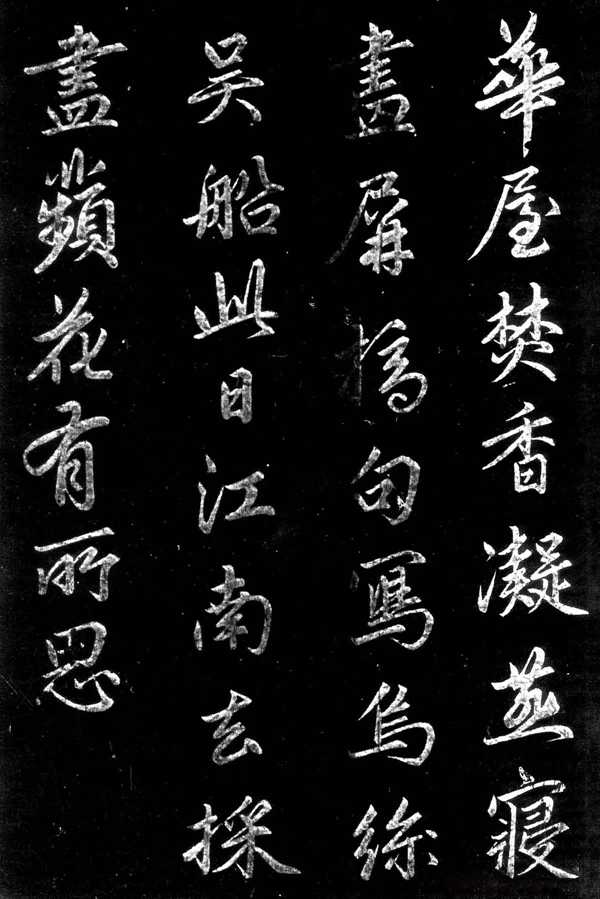 華屋焚香凝燕寢
畫屏摛句寫烏絲
吳船此日江南去採
盡蘋花有所思